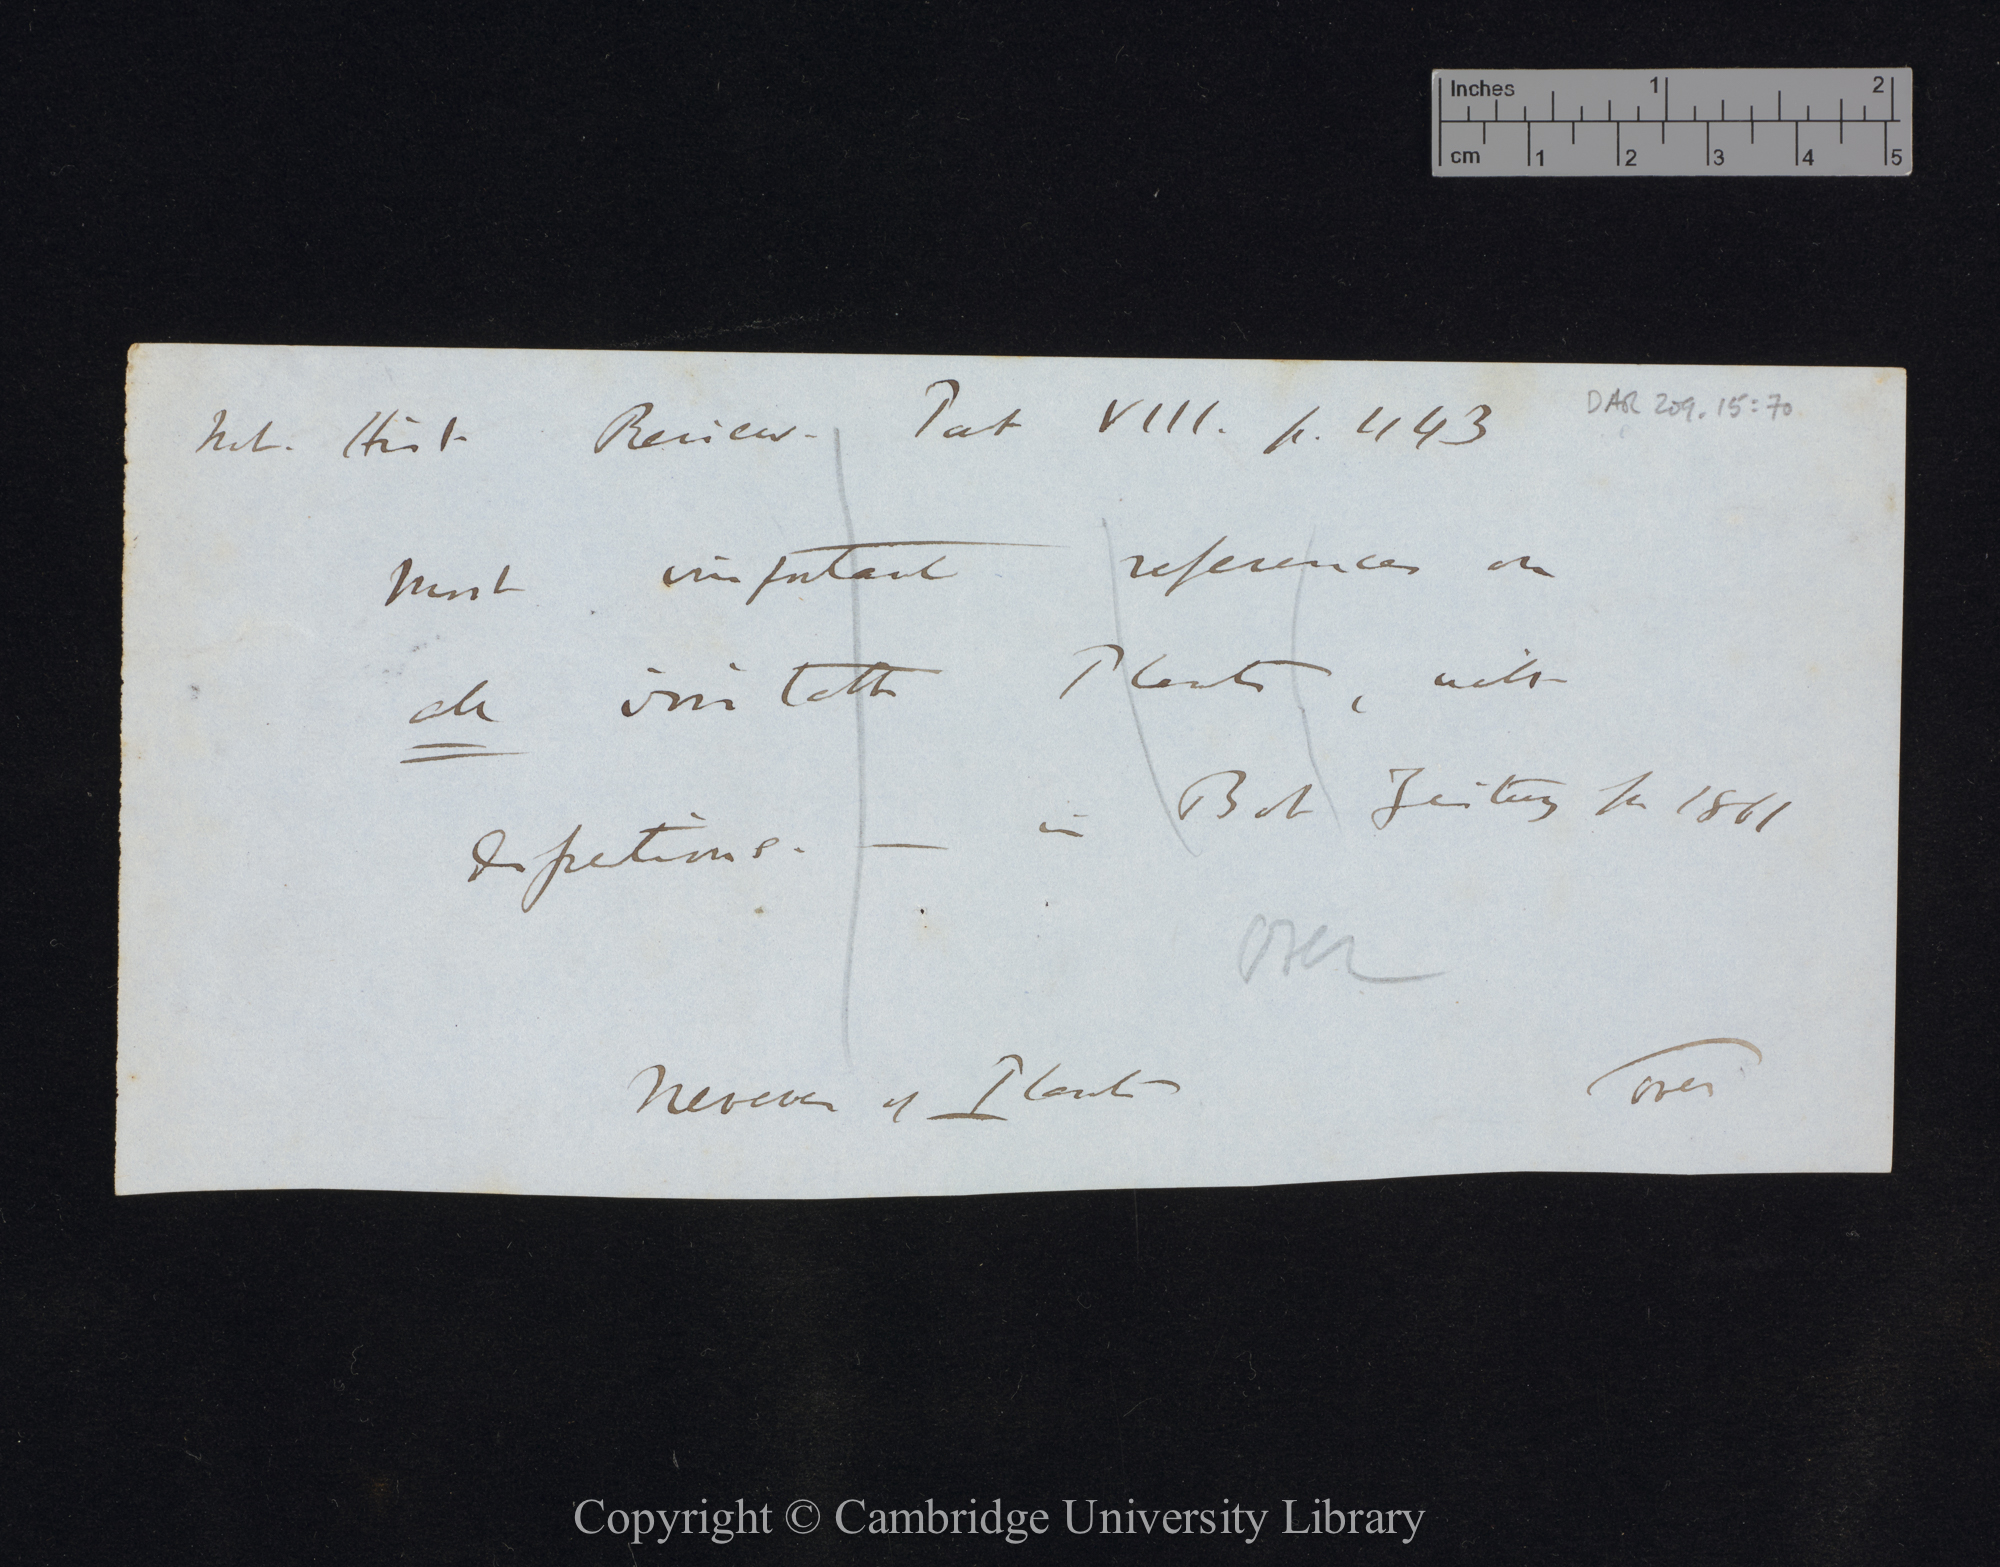 Inches 1 2
cm 1 2 3 4 5
DAR 209.15:70
Nat. Hist Review. Part VIII. p. 443
Most important references on
all irritable Plants, with
in Bot Zeitung for 1861
over
Nerves of Plants
over
Copyright © Cambridge University Library